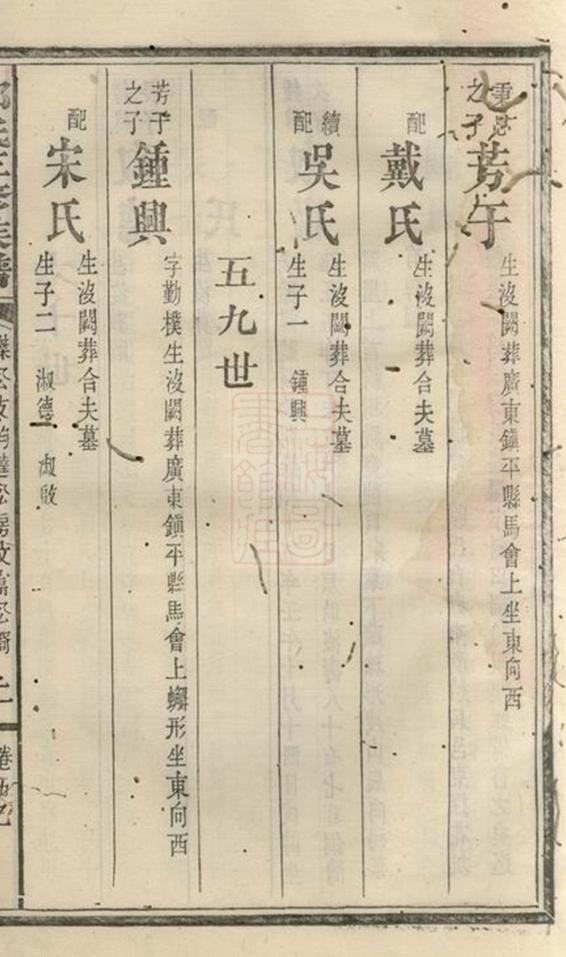 秉忠之子
芳午
生沒闕葬廣東鎮平縣馬會上坐東向西
配
戴氏
生沒闕葬合夫墓
續配
吳氏
生沒闕葬合夫墓
生子一 鍾興
五九世
芳午之子
鍾興
字勤樸生沒闕葬廣東鎮平縣馬會上蠏形坐東向西
配
宋氏
生沒闕葬合夫墓
生子二 淑德 淑啟